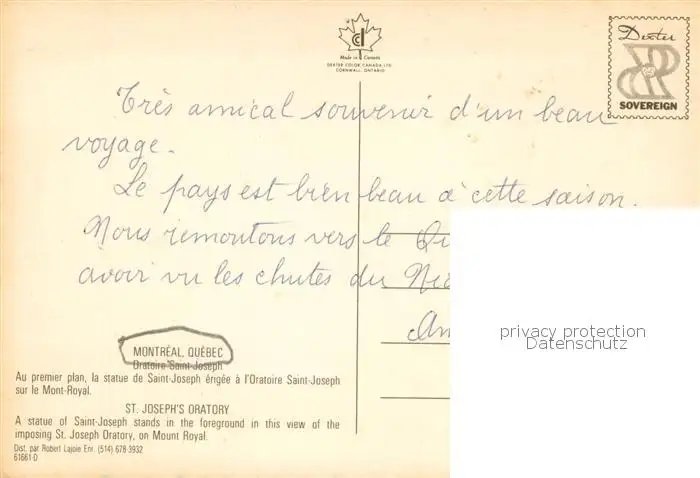 Made in Canada
DEXTER COLOR CANADA LTD.
CORNWALL, ONTARIO
Dexter
SOVEREIGN
Très amical souvenir d'un beau
voyage.
Le pays est bien beau à cette saison.
Nous remontons vers le
avoir vu les chutes du
MONTRÉAL, QUÉBEC
Oratoire Saint-Joseph
Au premier plan, la statue de Saint-Joseph érigée à l'Oratoire Saint-Joseph
sur le Mont-Royal.
ST. JOSEPH'S ORATORY
A statue of Saint-Joseph stands in the foreground in this view of the
imposing St. Joseph Oratory, on Mount Royal.
Dist. par Robert Lajoie Enr. (514) 678-3932
61661-D
privacy protection
Datenschutz